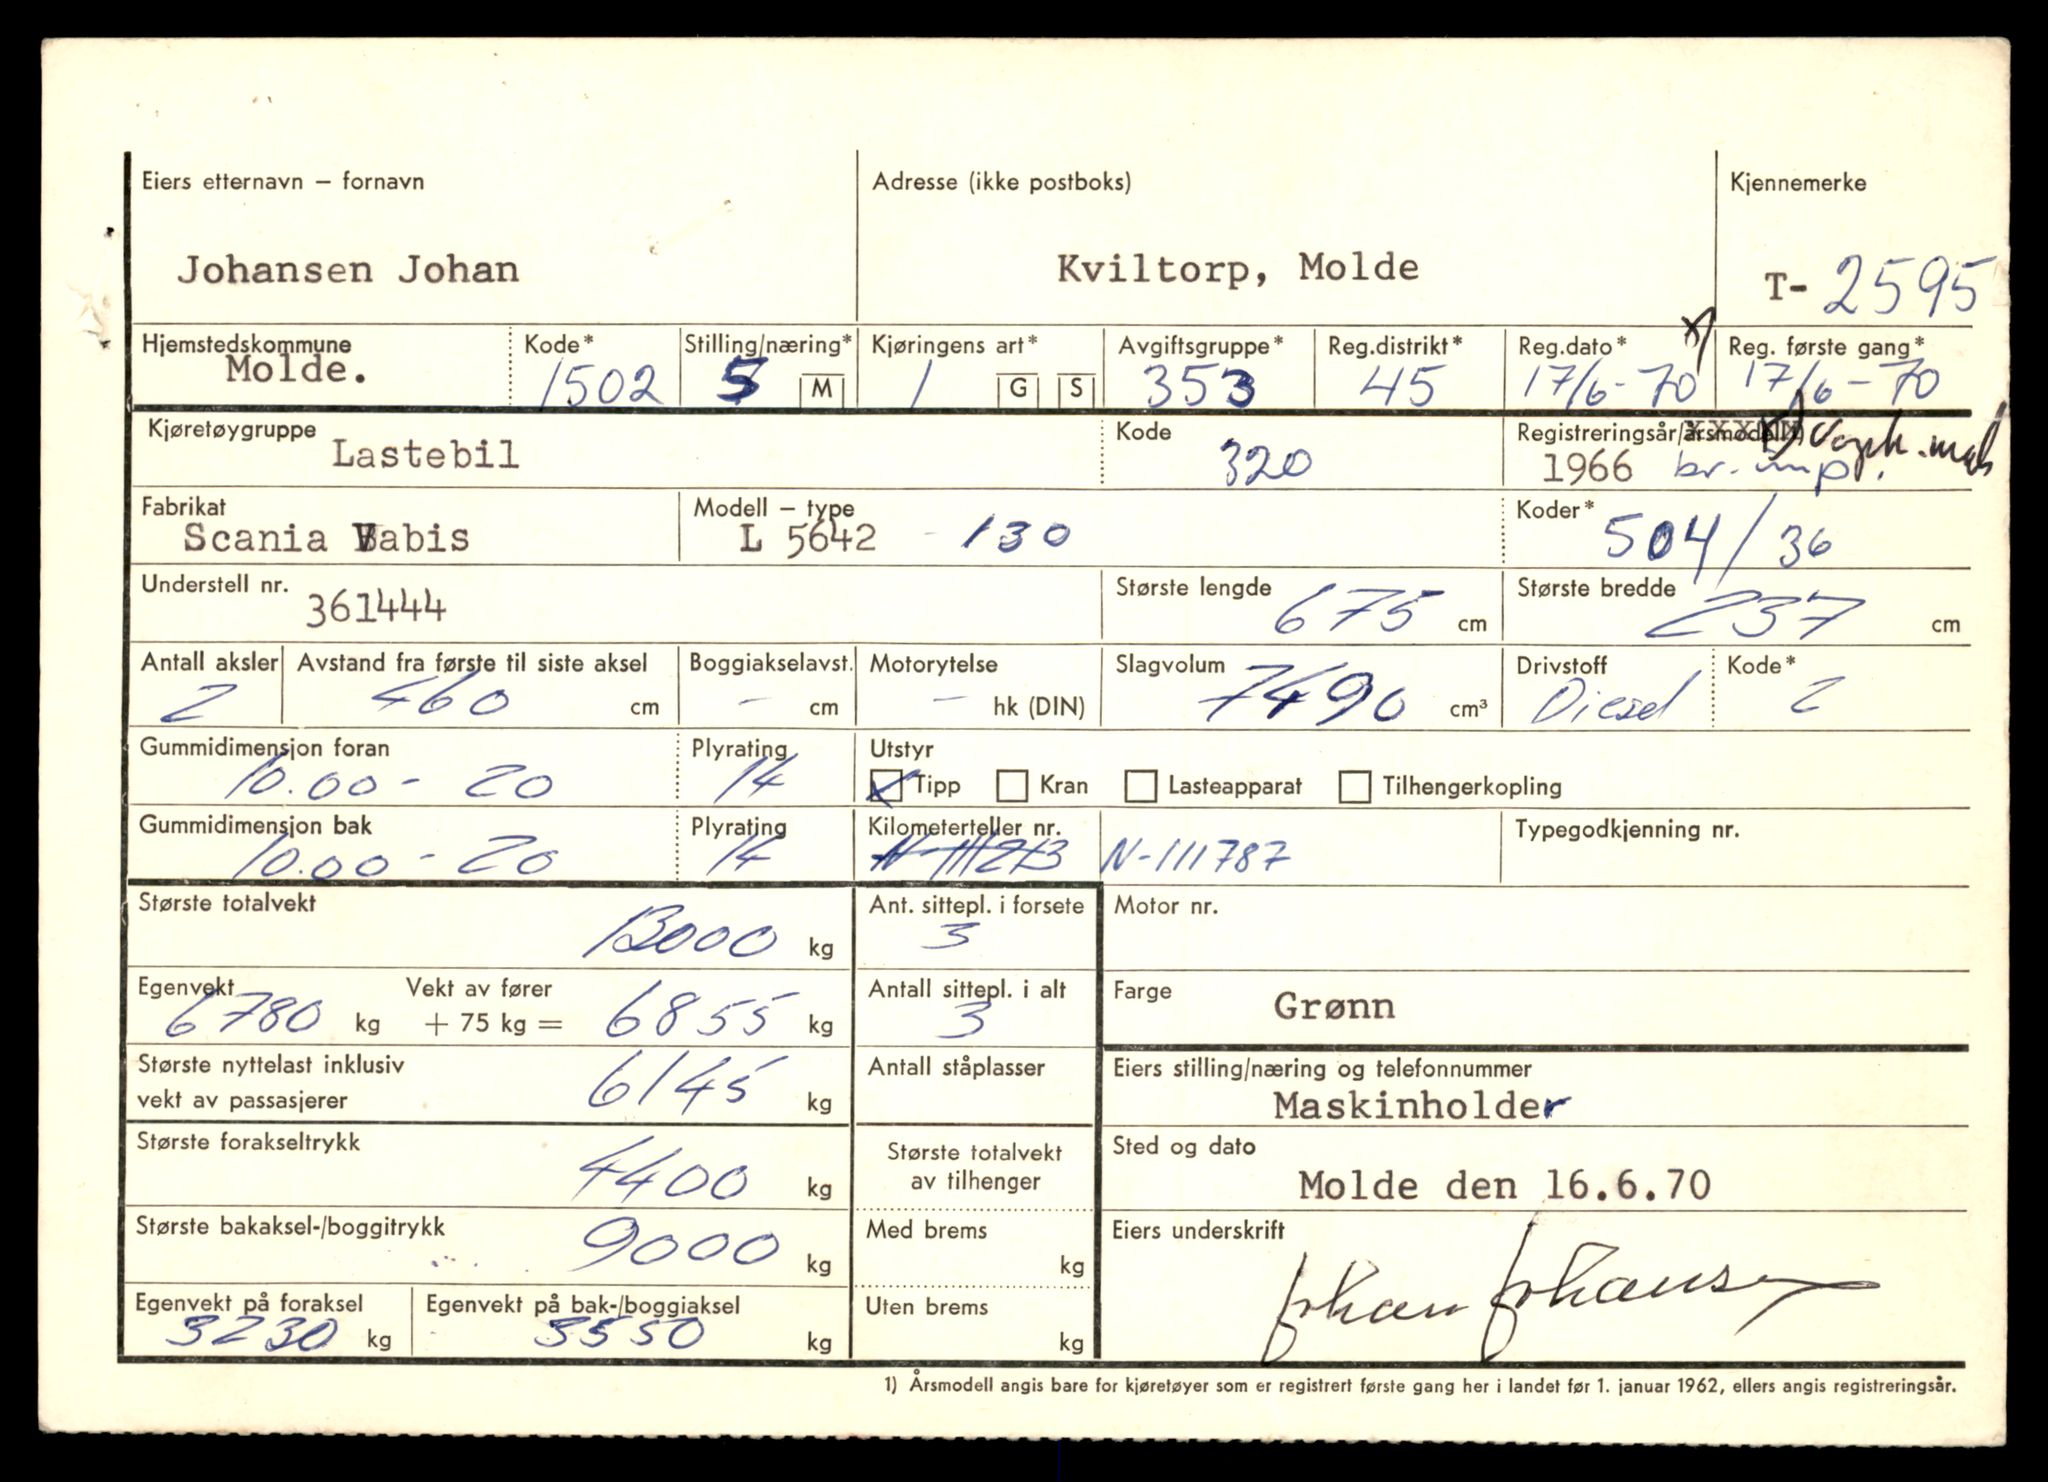 Eiers etternavn – fornavn Adresse (ikke postboks) Kjennemerke
Johansen Johan Kviltorp, Molde T- 2595
Hjemstedskommune Kode* Stilling/næring* Kjøringens art* Avgiftsgruppe* Reg.distrikt* Reg.dato* Reg. første gang*
Molde. 1502 5 M 1 G S 353 45 17/6-70 17/6-70
Kjøretøygruppe Kode Registreringsår/årsmodell
Lastebil 320 1966 br. imp.
Fabrikat Modell – type Koder*
Scania Vabis L 5642 - 130 504/36
Understell nr. Største lengde Største bredde
361444 675 cm 237 cm
Antall aksler Avstand fra første til siste aksel Boggiakselavst. Motorytelse Slagvolum Drivstoff Kode*
2 460 cm - cm - hk (DIN) 7490 cm³ Diesel 2
Gummidimensjon foran Plyrating Utstyr
10.00 - 20 14 Tipp Kran Lasteapparat Tilhengerkopling
Gummidimensjon bak Plyrating Kilometerteller nr. Typegodkjenning nr.
10.00 - 20 14 N-111787
Største totalvekt Ant. sittepl. i forsete Motor nr.
13000 kg 3
Egenvekt Vekt av fører Antall sittepl. i alt Farge
6780 kg + 75 kg = 6855 kg 3 Grønn
Største nyttelast inklusiv Antall ståplasser Eiers stilling/næring og telefonnummer
vekt av passasjerer 6145 kg Maskinholder
Største forakseltrykk Største totalvekt Sted og dato
4400 kg av tilhenger Molde den 16.6.70
Største bakaksel-/boggitrykk Med brems Eiers underskrift
9000 kg kg
Egenvekt på foraksel Egenvekt på bak-/boggiaksel Uten brems Johan Johansen
3230 kg 3550 kg kg
1) Årsmodell angis bare for kjøretøyer som er registrert første gang her i landet før 1. januar 1962, ellers angis registreringsår.